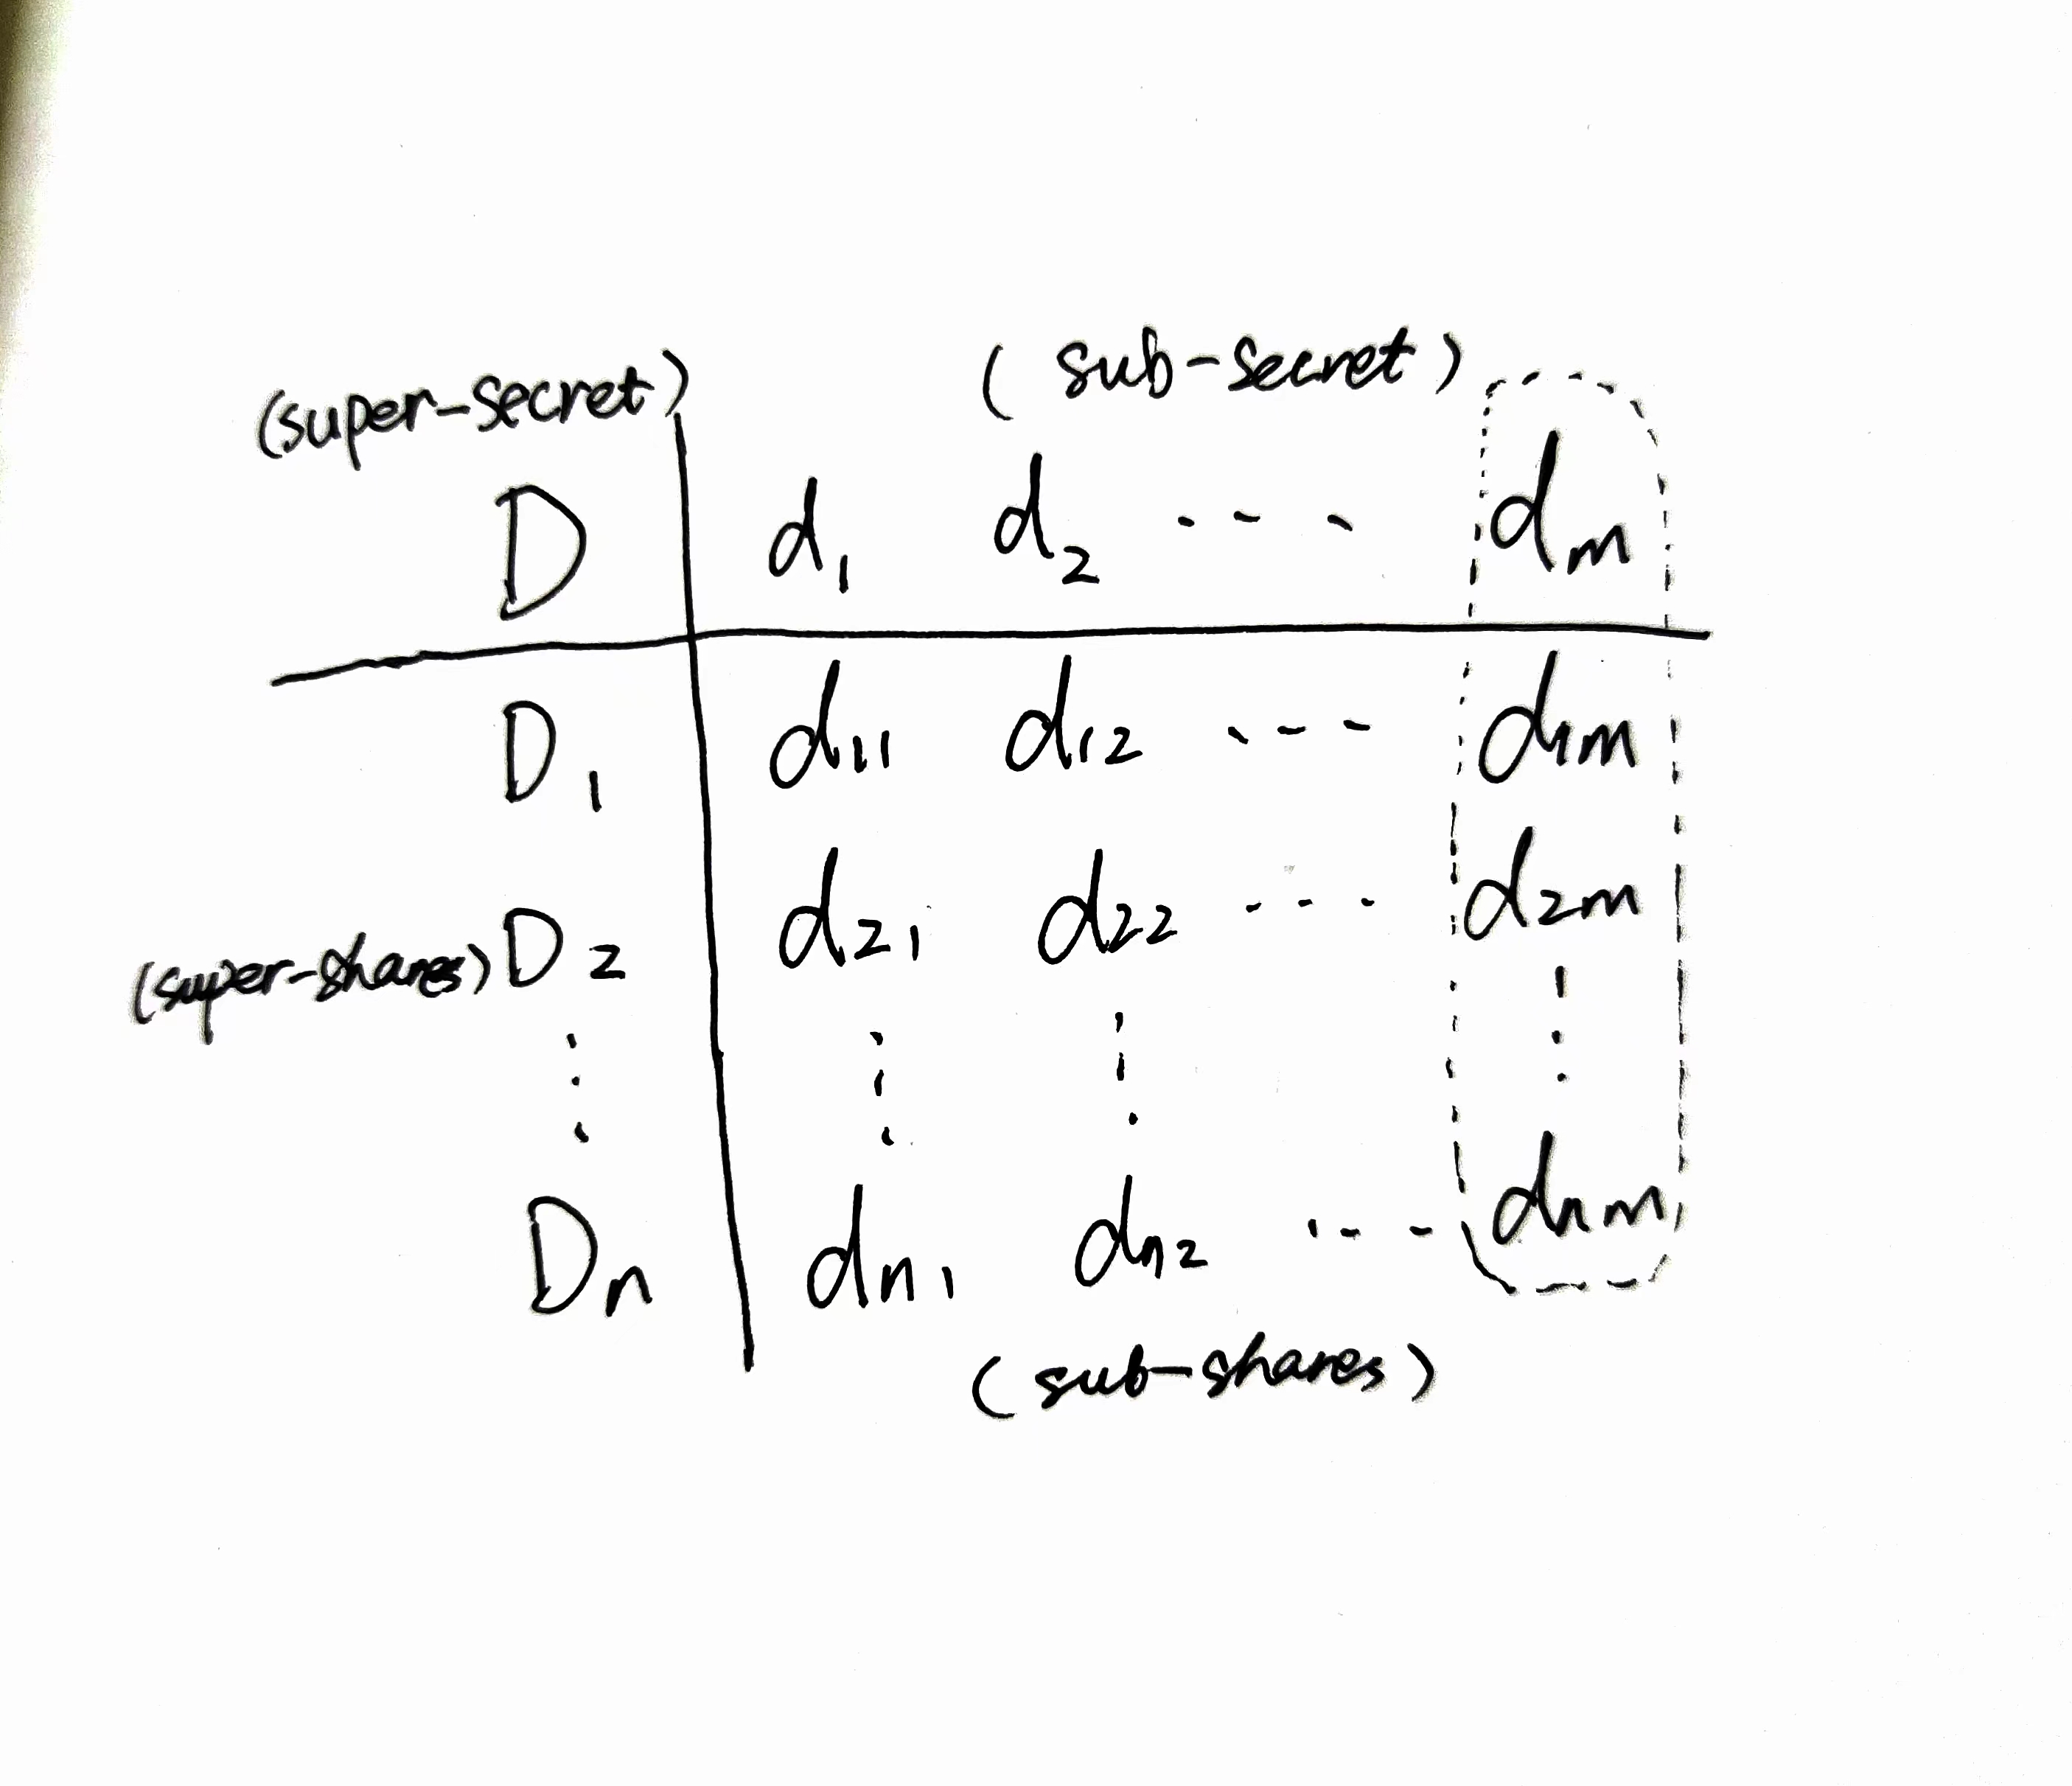 (super-secret) (sub-secret)
D d1 d2 --- dm
D1 d11 d12 --- d1m
(super-shares) D2 d21 d22 --- d2m
Dn dn1 dn2 --- dnm
(sub-shares)